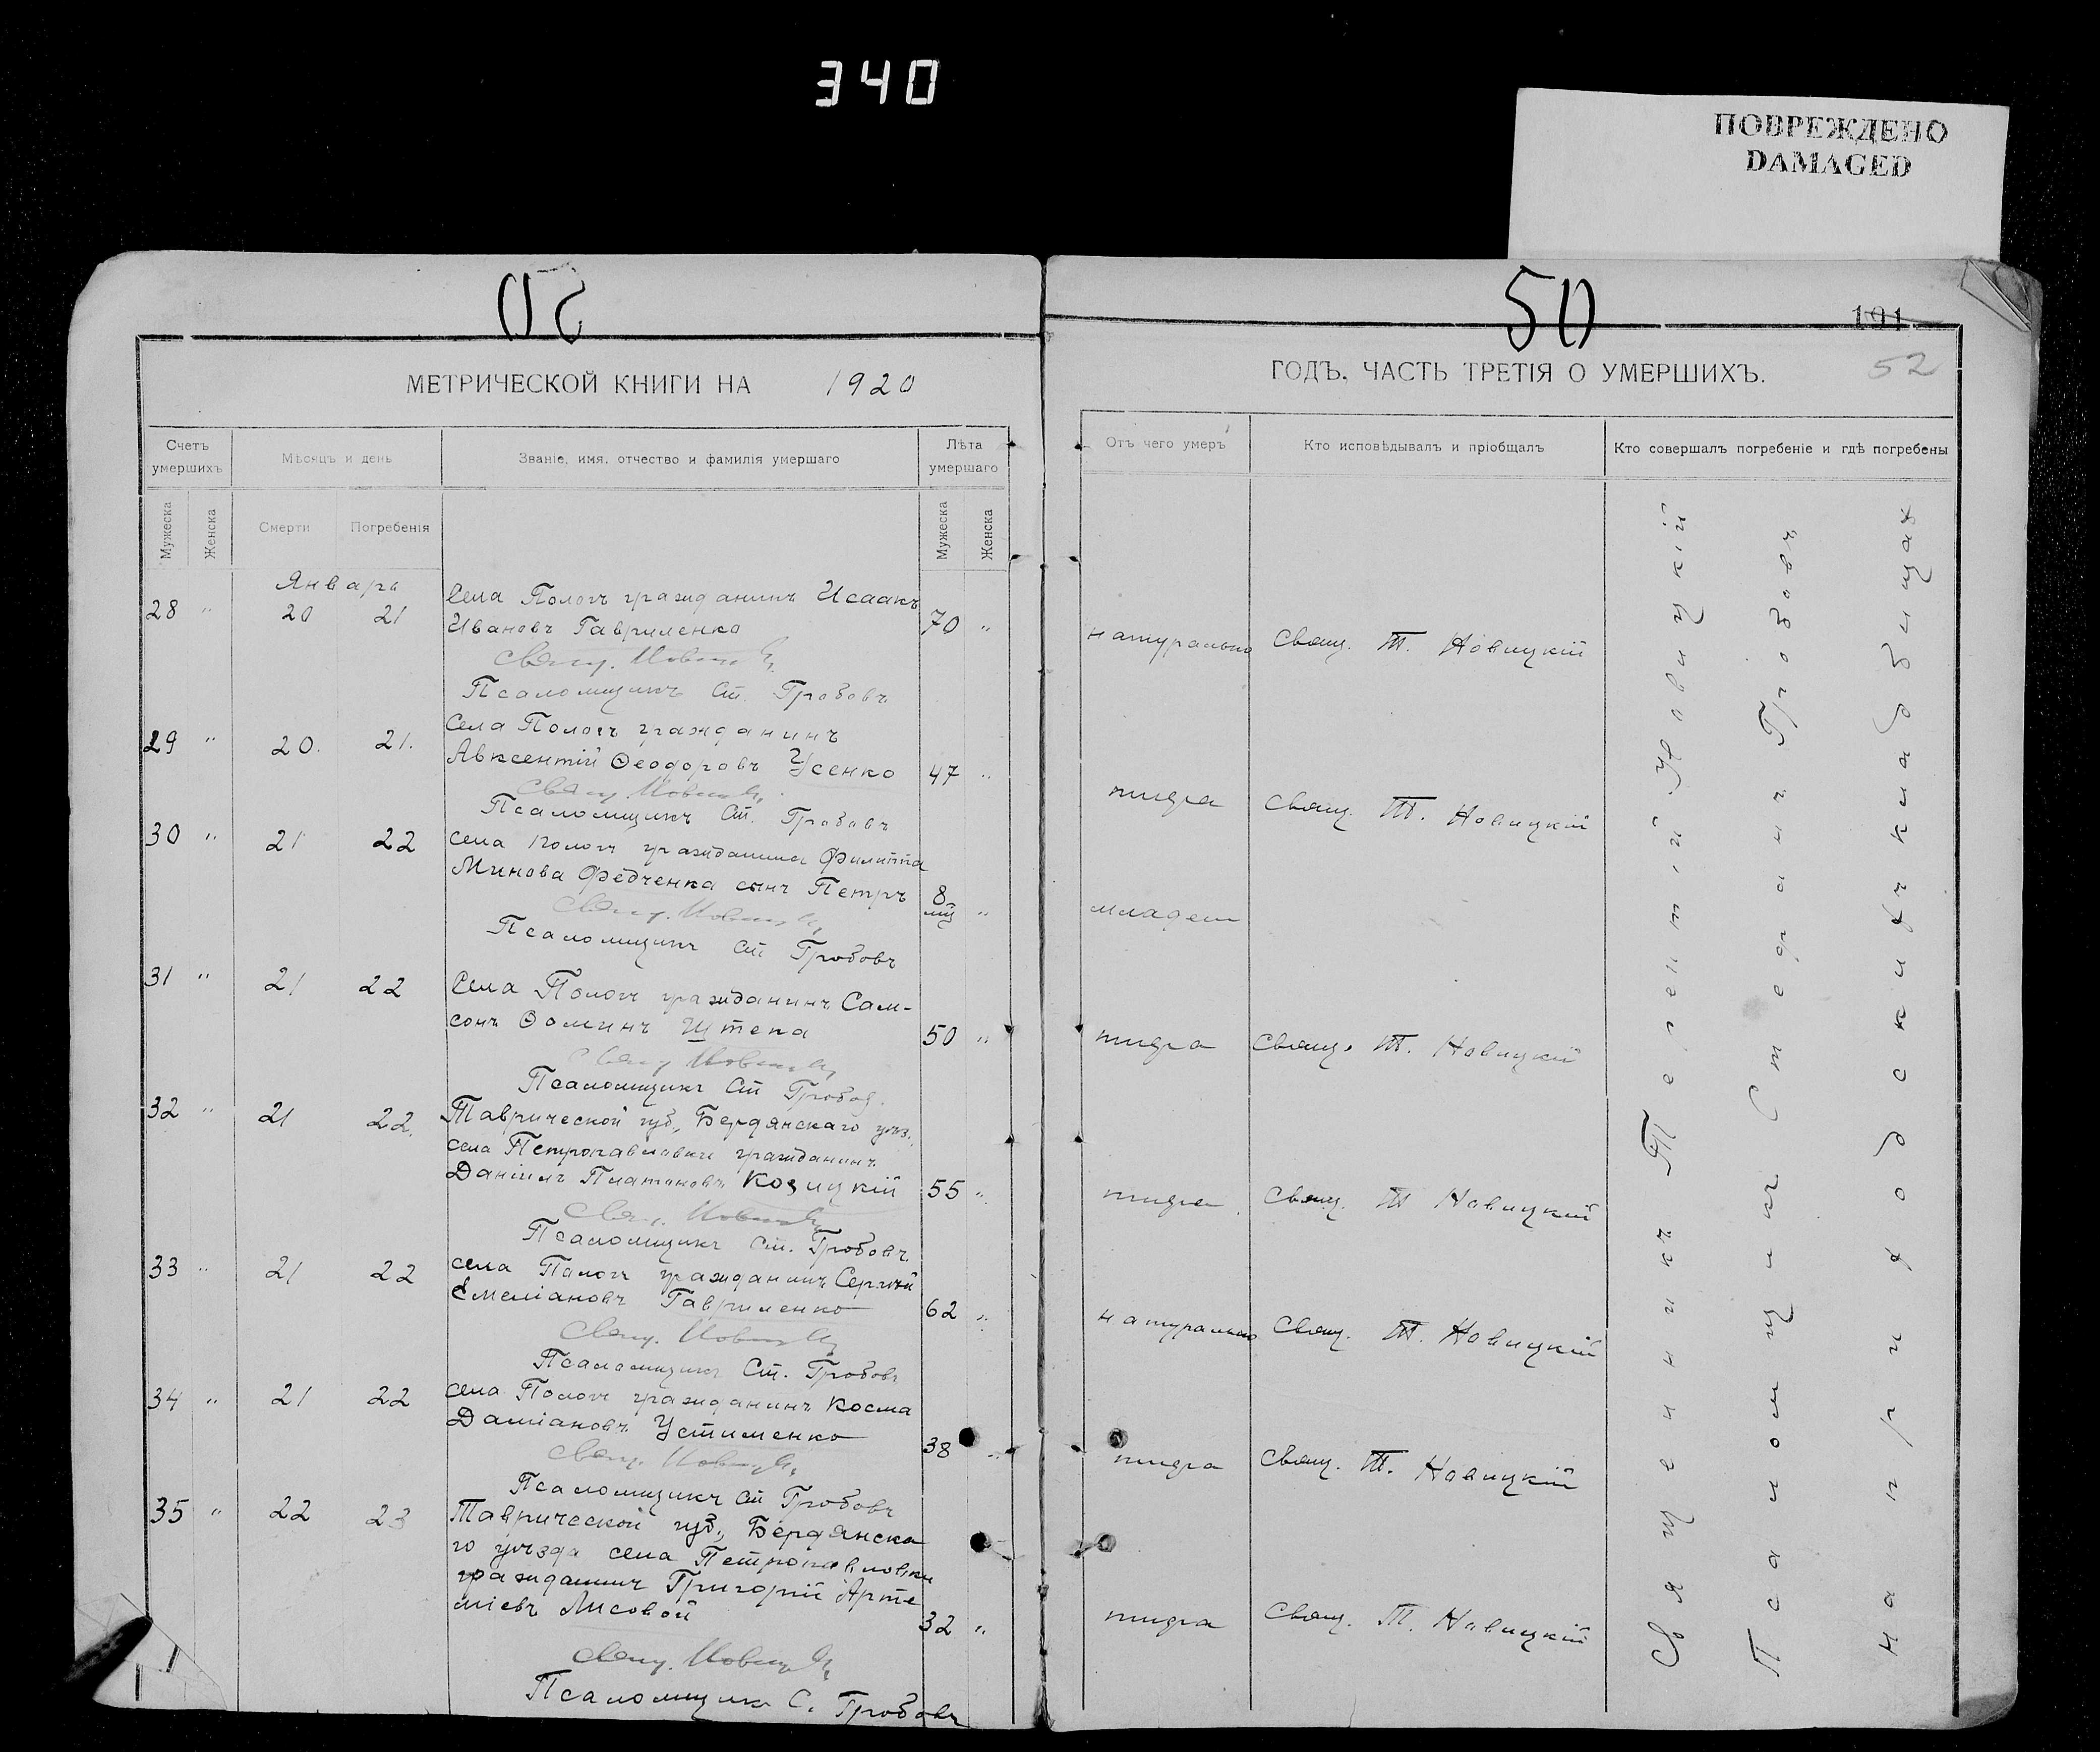 340
ПОВРЕЖДЕНО
DAMAGED
50
50
191
52
МЕТРИЧЕСКОЙ КНИГИ НА 1920
ГОДЪ. ЧАСТЬ ТРЕТІЯ О УМЕРШИХЪ.
Счетъ умершихъ
Мѣсяцъ и день
Званіе, имя, отчество и фамилія умершаго
Лѣта умершаго
Мужеска
Женска
Смерти
Погребенія
Мужеска
Женска
Отъ чего умеръ
Кто исповѣдывалъ и пріобщалъ
Кто совершалъ погребеніе и гдѣ погребены
Январь
28 " 20 21 Села Пологъ гражданинъ Исаакъ
Ивановъ Гавриленко 70 "
натурально Свящ. Т. Новицкій
Свящ. Новицкій
Псаломщикъ Ст. Гробовъ
29 " 20. 21. Села Пологъ гражданинъ
Авксентій Ѳеодоровъ Усенко 47 "
тифа Свящ. Т. Новицкій
Свящ. Новицкій
Псаломщикъ Ст. Гробовъ
30 " 21 22 села Пологъ гражданина Филиппа
Минова Федченка сынъ Петръ 8 "
младен
Свящ. Новицкій
Псаломщикъ Ст Гробовъ
31 " 21 22 Села Пологъ гражданинъ Сам-
сонъ Ѳоминъ Штепа 50 "
тифа Свящ. Т. Новицкій
Свящ Новицкій
Псаломщикъ Ст Гробов.
32 " 21 22. Таврической губ., Бердянскаго уѣз.
села Петропавловки гражданинъ
Даніилъ Платоновъ Козицкій 55 "
тифа Свящ. Т Новицкій
Свящ. Новицкій
Псаломщикъ Ст. Гробовъ
33 " 21 22 села Пологъ гражданинъ Сергѣй
Емеліановъ Гавриленко 62 "
натурально Свящ. Т. Новицкій
Свящ. Новицкій
Псаломщикъ Ст. Гробовъ
34 " 21 22 села Пологъ гражданинъ Косма
Даміановъ Устименко 38 "
тифа Свящ. Т. Новицкій
Свящ. Новицкій
Псаломщикъ Ст Гробовъ
35 " 22 23 Таврической губ., Бердянска
го уѣзда села Петропавловки
гражданинъ Григорій Арте
міевъ Лисовой 32 "
тифа Свящ. Т. Новицкій
Свящ. Новицкій
Псаломщик С. Гробовъ
Священникъ Терентій Новицкій
Псаломщикъ Стефанъ Гробовъ
на приходскихъ кладбищах